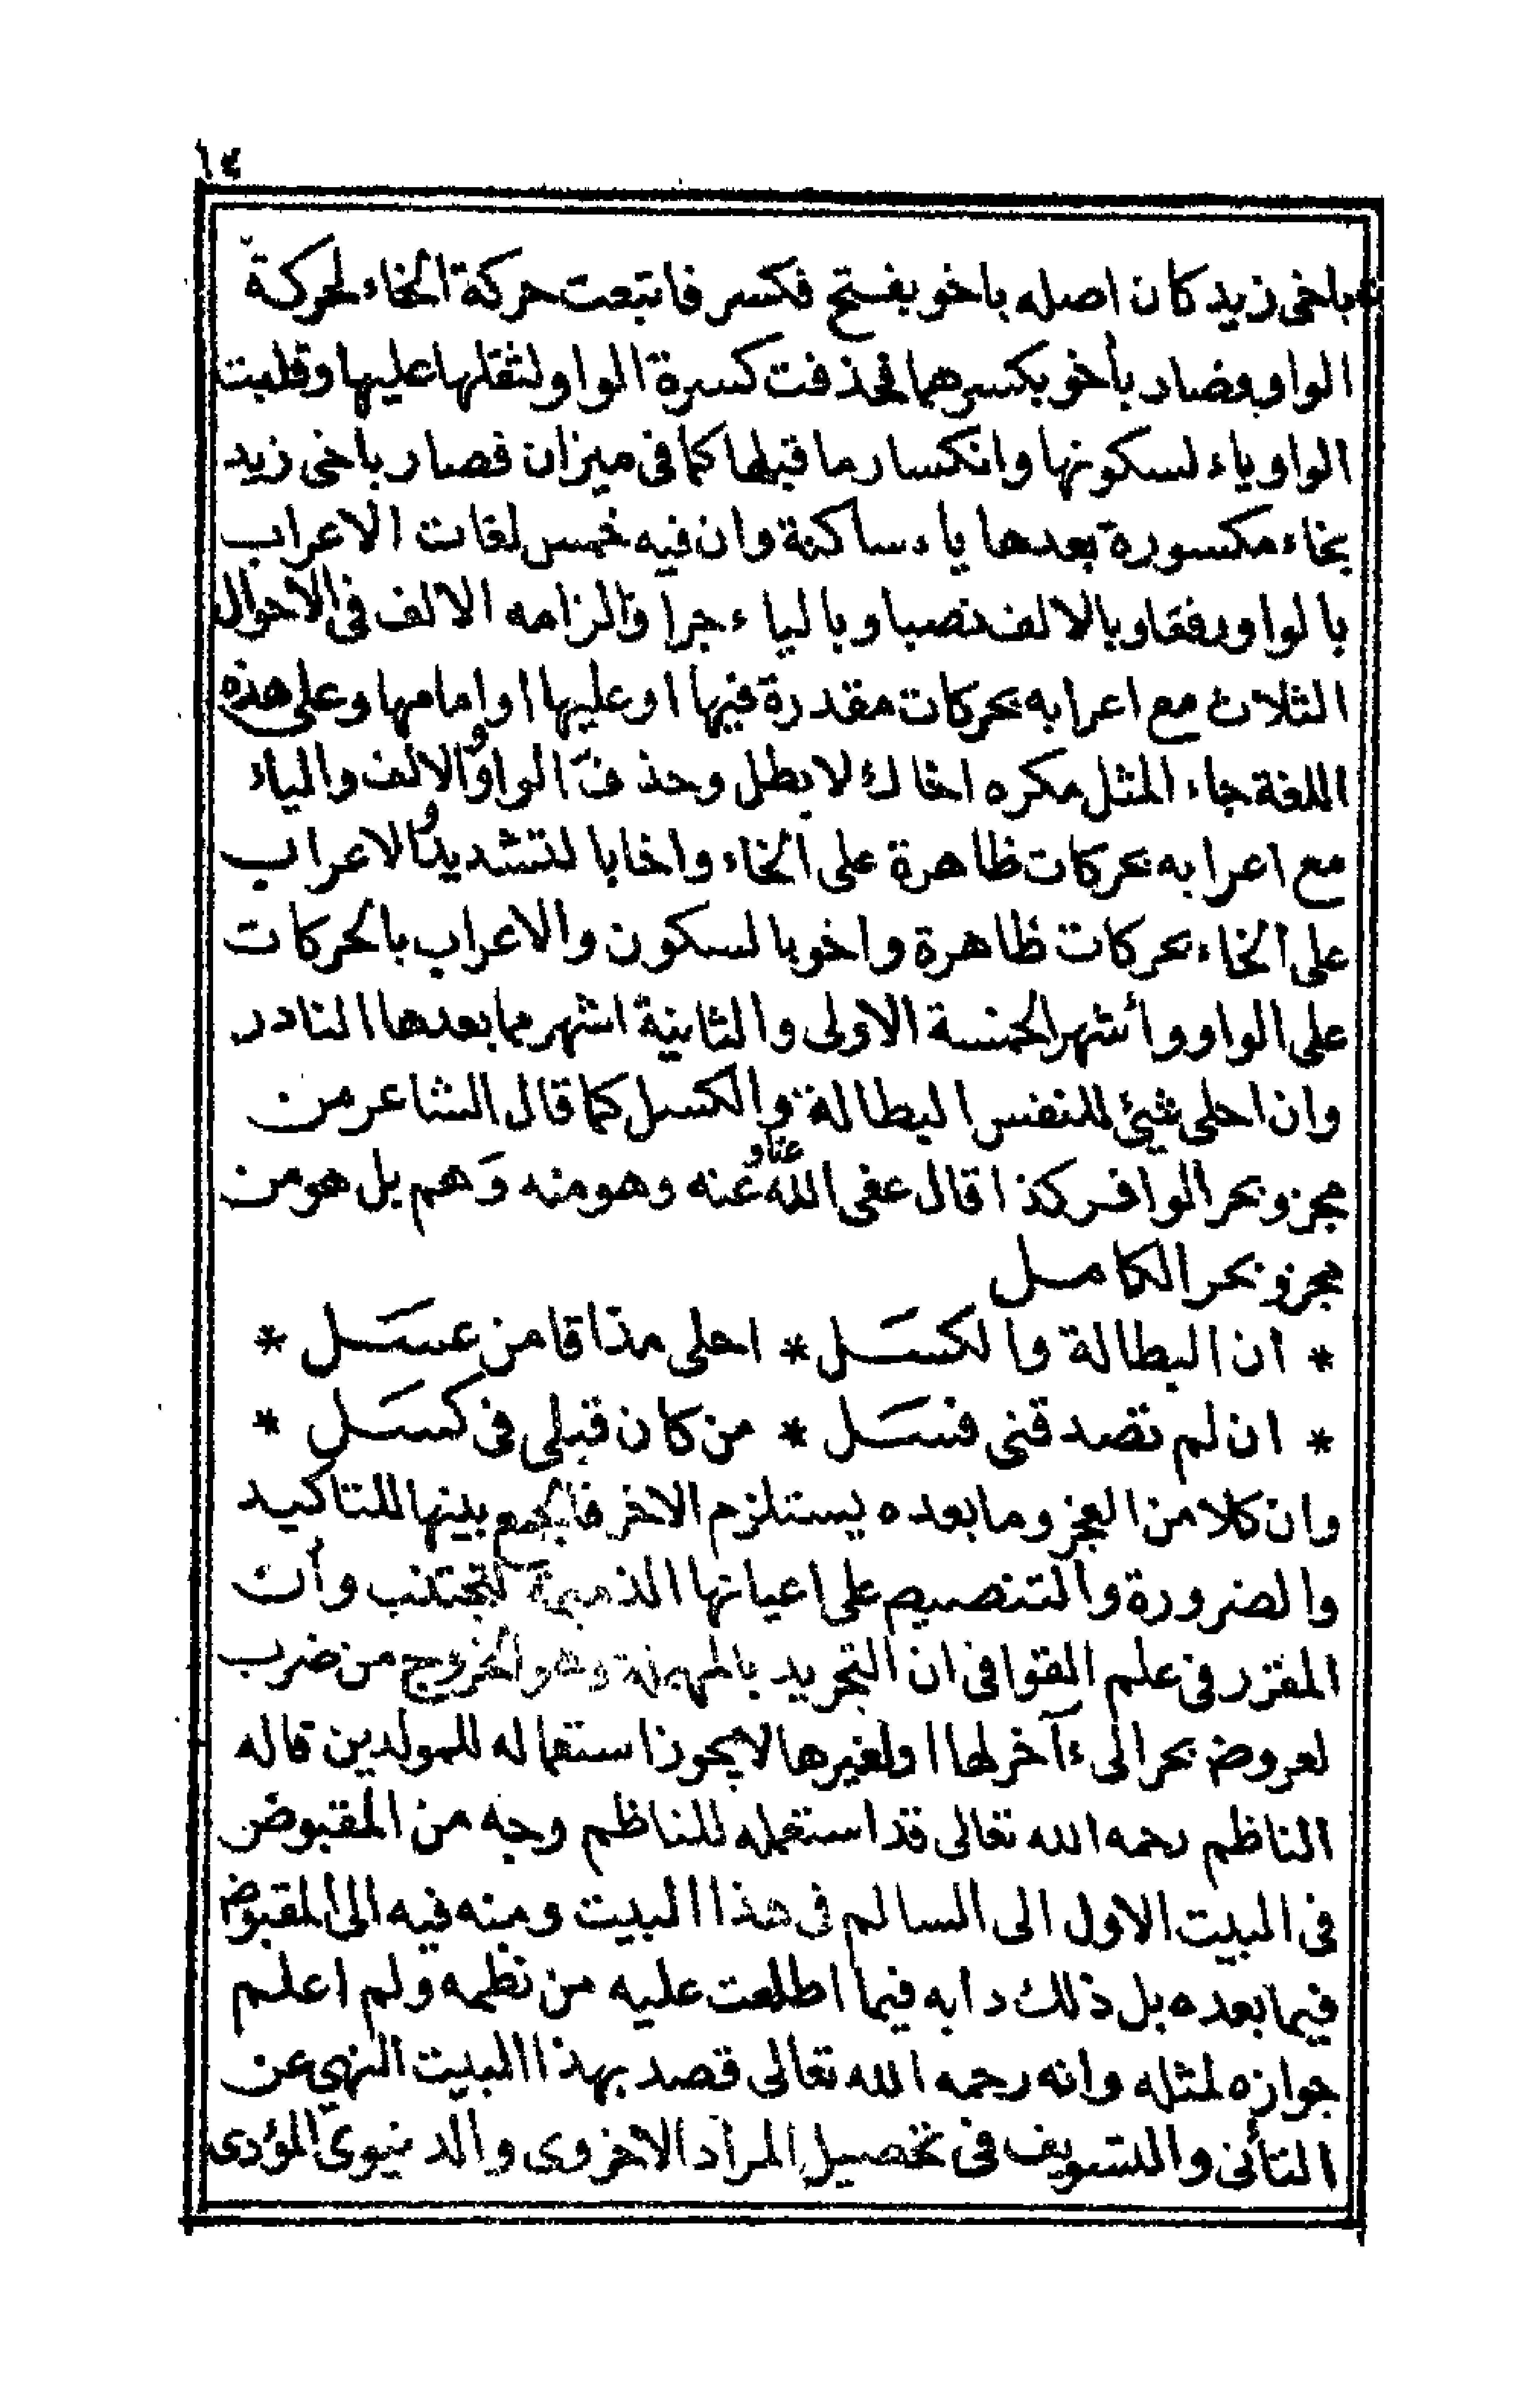 ١٤
باخى زيد كان اصله باخو بفتح فكسر فاتبعت حركة الخاء لحركة
الواو فصار بأخو بكسرهما فحذفت كسرة الواو لثقلها عليها وقلبت
الواو ياء لسكونها وانكسار ما قبلها كما فى ميزان فصار باخى زيد
بخاء مكسورة بعدها ياء ساكنة وان فيه خمس لغات الاعراب
بالواو رفعا وبالالف نصبا وبالياء جرا والزامه الالف فى الاحوال
الثلاث مع اعرابه بحركات مقدرة فيها او عليها او امامها وعلى هذه
اللغة جاء المثل مكره اخاك لا بطل وحذف الواو والالف والياء
مع اعرابه بحركات ظاهرة على الخاء واخا بالتشديد والاعراب
على الخاء بحركات ظاهرة واخو بالسكون والاعراب بالحركات
على الواو وأشهر الخمسة الاولى والثانية اشهر مما بعدها النادر
وان احلى شيئ للنفس البطالة والكسل كما قال الشاعر من
مجزو بحر الوافر كذا قال عفى الله عنا وعنه وهو منه وَهم بل هو من
مجزو بحر الكامل
* ان البطالة والكسَل * احلى مذاقا من عسَل *
* ان لم تصدقنى فسَل * من كان قبلى فى كسَل *
وان كلا من العجز وما بعده يستلزم الاخر فالجمع بينها للتاكيد
والضرورة والتنصيص على اعيانها الذميمة لتجتنب وأن
المقرر فى علم القوافى ان التحريد بالمهملة وهو الخروج من ضرب
لعروض بحر الى ءآخر لها او لغيرها لا يجوز استعماله للمولدين قاله
الناظم رحمه الله تعالى قد استعمله للناظم وجه من المقبوض
فى البيت الاول الى السالم فى هذا البيت ومنه فيه الى المقبوض
فيما بعده بل ذلك دابه فيما اطلعت عليه من نظمه ولم اعلم
جوازه لمثله وانه رحمه الله تعالى قصد بهذا البيت النهي عن
التأنى والتسويف فى تحصيل المراد الاخروى والدنيوى المؤدى